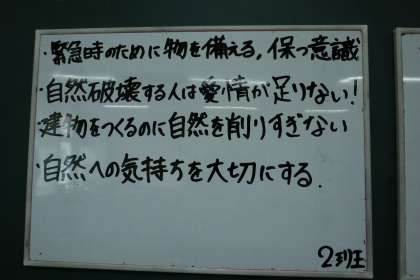 ・緊急時のために物を備える,保つ意識
・自然破壊する人は愛情が足りない!
・建物をつくるのに自然を削りすぎない
・自然への気持ちを大切にする.
2班